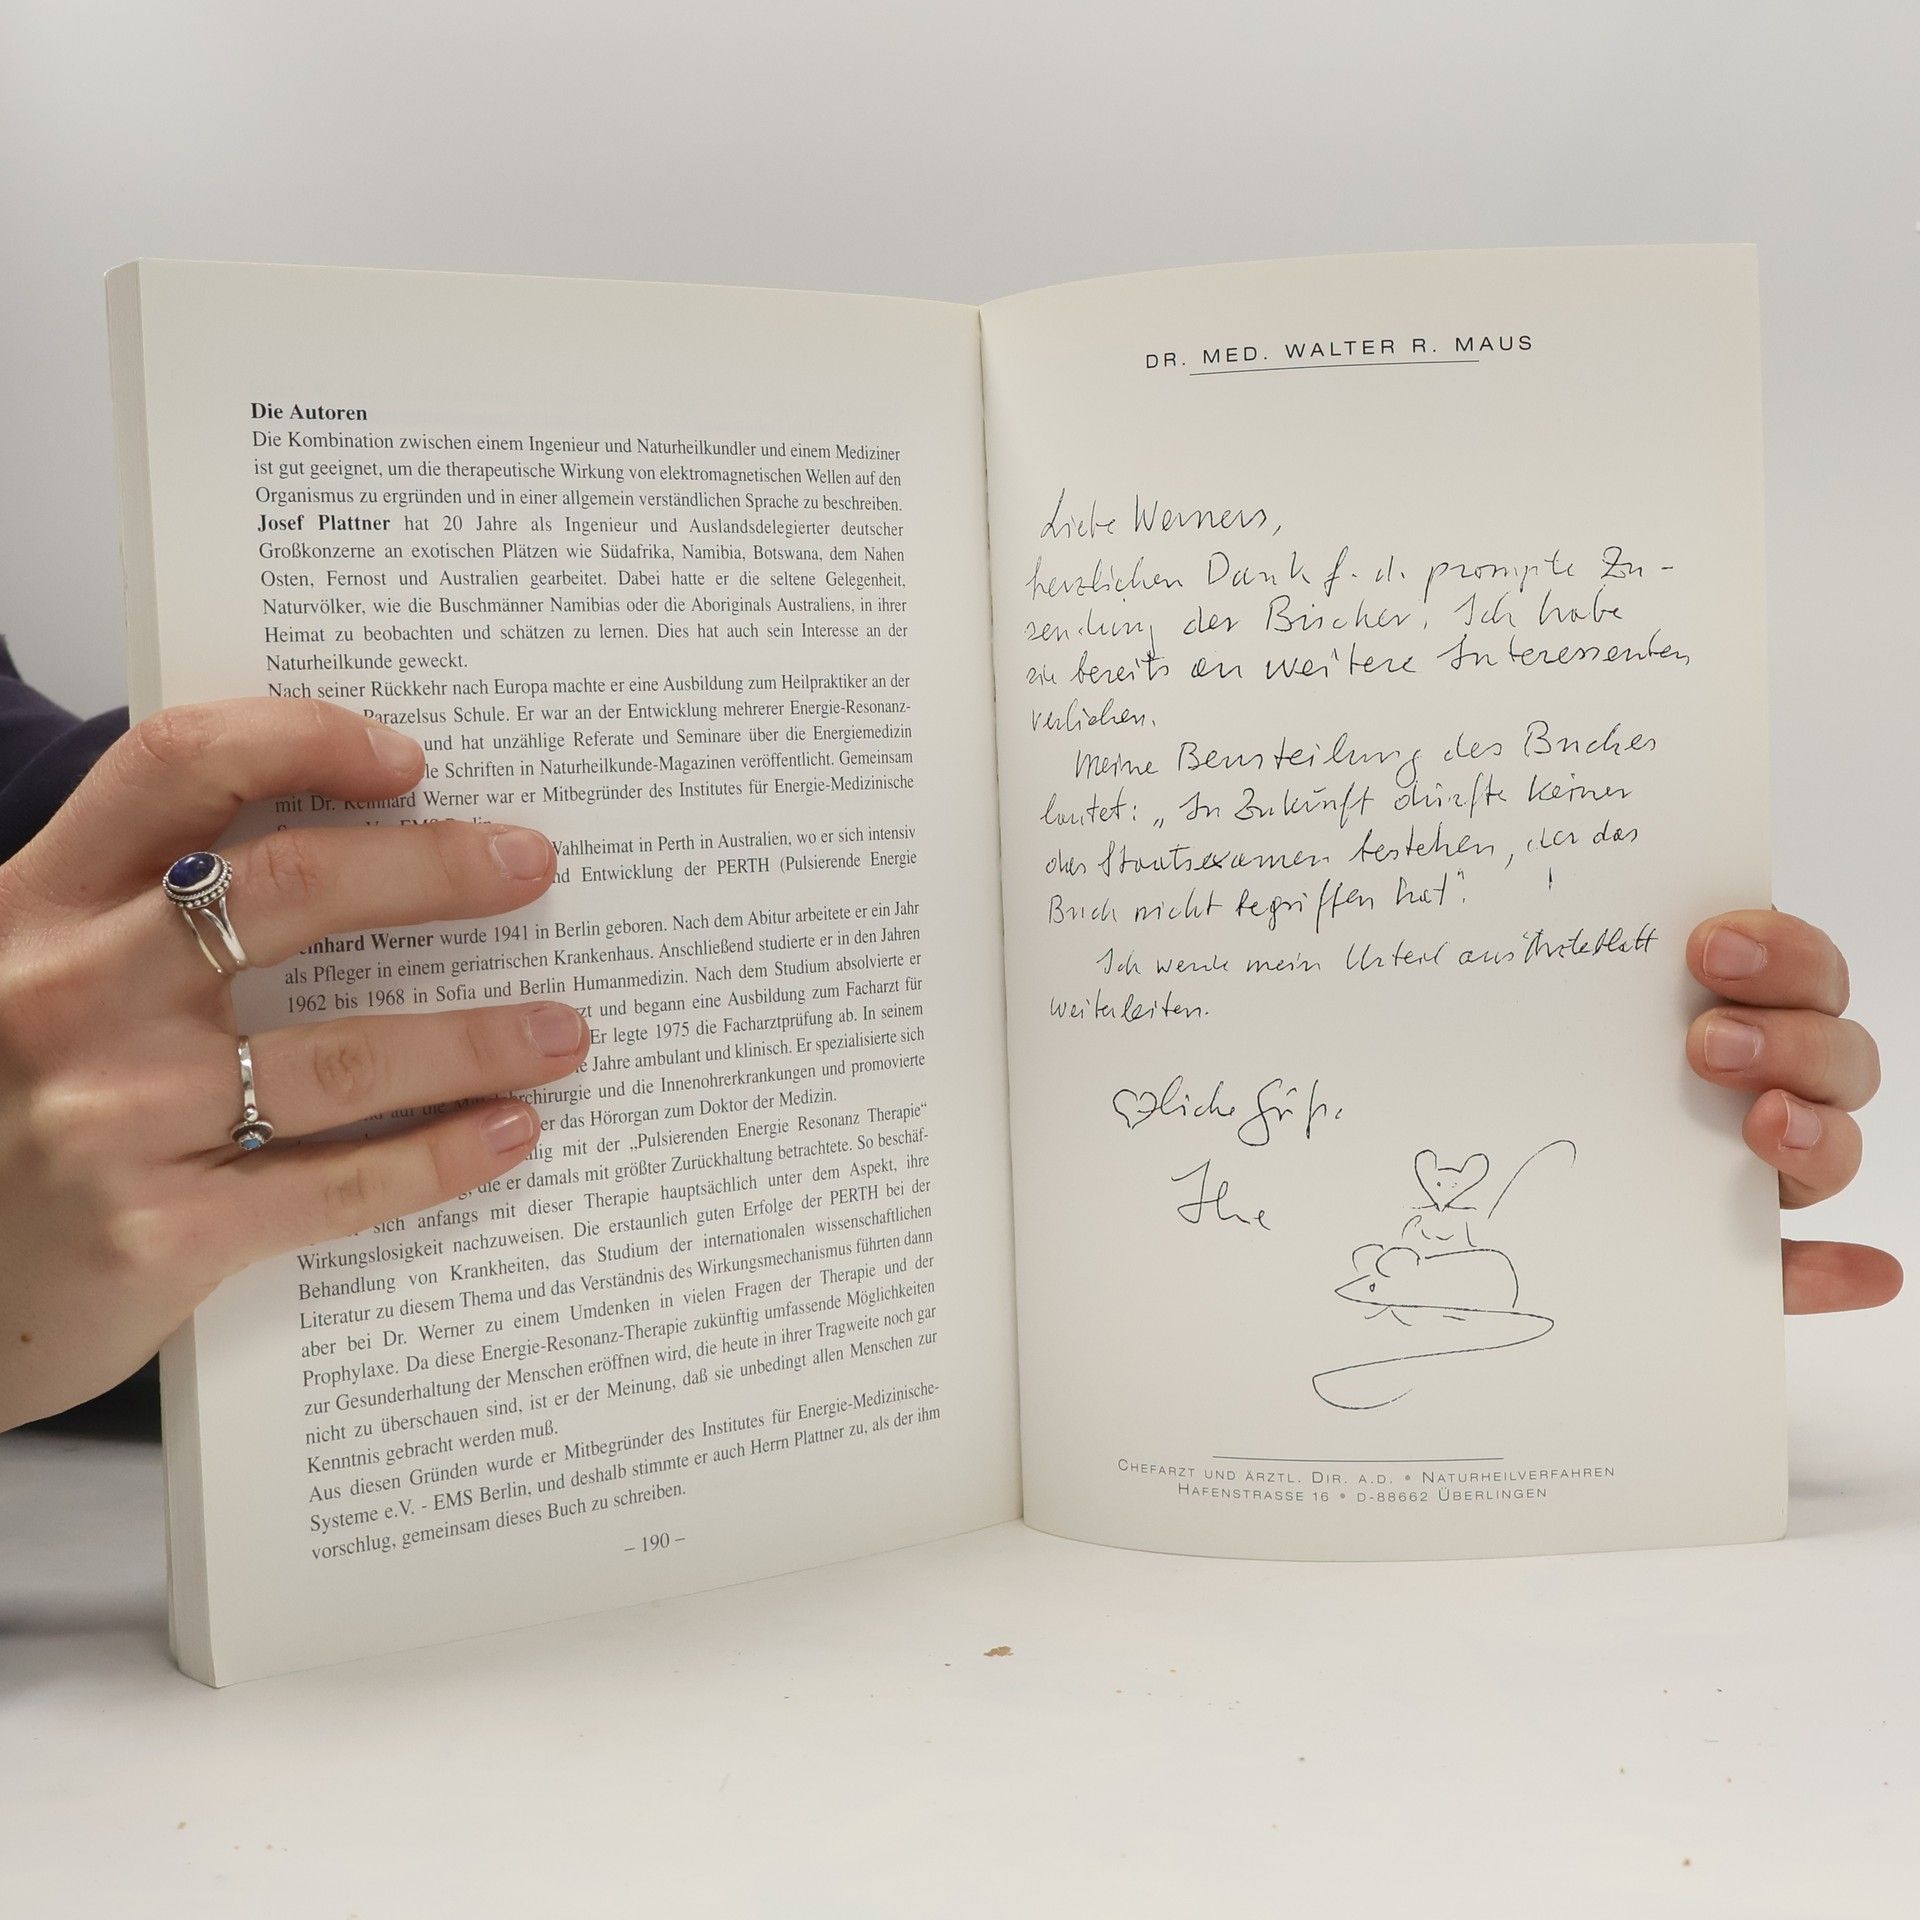 Die Autoren
Die Kombination zwischen einem Ingenieur und Naturheilkundler und einem Mediziner
ist gut geeignet, um die therapeutische Wirkung von elektromagnetischen Wellen auf den
Organismus zu ergründen und in einer allgemein verständlichen Sprache zu beschreiben.
Josef Plattner hat 20 Jahre als Ingenieur und Auslandsdelegierter deutscher
Großkonzerne an exotischen Plätzen wie Südafrika, Namibia, Botswana, dem Nahen
Osten, Fernost und Australien gearbeitet. Dabei hatte er die seltene Gelegenheit,
Naturvölker, wie die Buschmänner Namibias oder die Aboriginals Australiens, in ihrer
Heimat zu beobachten und schätzen zu lernen. Dies hat auch sein Interesse an der
Naturheilkunde geweckt.
Nach seiner Rückkehr nach Europa machte er eine Ausbildung zum Heilpraktiker an der
Parazelsus Schule. Er war an der Entwicklung mehrerer Energie-Resonanz-
und hat unzählige Referate und Seminare über die Energiemedizin
Schriften in Naturheilkunde-Magazinen veröffentlicht. Gemeinsam
mit Dr. Reinhard Werner war er Mitbegründer des Institutes für Energie-Medizinische
Wahlheimat in Perth in Australien, wo er sich intensiv
Entwicklung der PERTH (Pulsierende Energie
Reinhard Werner wurde 1941 in Berlin geboren. Nach dem Abitur arbeitete er ein Jahr
als Pfleger in einem geriatrischen Krankenhaus. Anschließend studierte er in den Jahren
1962 bis 1968 in Sofia und Berlin Humanmedizin. Nach dem Studium absolvierte er
und begann eine Ausbildung zum Facharzt für
Er legte 1975 die Facharztprüfung ab. In seinem
Jahre ambulant und klinisch. Er spezialisierte sich
und die Innenohrerkrankungen und promovierte
das Hörorgan zum Doktor der Medizin.
mit der „Pulsierenden Energie Resonanz Therapie“
die er damals mit größter Zurückhaltung betrachtete. So beschäf-
sich anfangs mit dieser Therapie hauptsächlich unter dem Aspekt, ihre
Wirkungslosigkeit nachzuweisen. Die erstaunlich guten Erfolge der PERTH bei der
Behandlung von Krankheiten, das Studium der internationalen wissenschaftlichen
Literatur zu diesem Thema und das Verständnis des Wirkungsmechanismus führten dann
aber bei Dr. Werner zu einem Umdenken in vielen Fragen der Therapie und der
Prophylaxe. Da diese Energie-Resonanz-Therapie zukünftig umfassende Möglichkeiten
zur Gesunderhaltung der Menschen eröffnen wird, die heute in ihrer Tragweite noch gar
nicht zu überschauen sind, ist er der Meinung, daß sie unbedingt allen Menschen zur
Kenntnis gebracht werden muß.
Aus diesen Gründen wurde er Mitbegründer des Institutes für Energie-Medizinische-
Systeme e.V. - EMS Berlin, und deshalb stimmte er auch Herrn Plattner zu, als der ihm
vorschlug, gemeinsam dieses Buch zu schreiben.
– 190 –
DR. MED. WALTER R. MAUS
Liebe Werners,
herzlichen Dank f. d. prompte Zu-
sendung der Bücher. Ich habe
sie bereits an weitere Interessenten
verliehen.
Meine Beurteilung des Buches
lautet: „In Zukunft dürfte keiner
das Staatsexamen bestehen, der das
Buch nicht begriffen hat“!
Ich werde mein Urteil ans Ärzteblatt
weiterleiten.
liche Grüße
Ihr
CHEFARZT UND ÄRZTL. DIR. A.D. • NATURHEILVERFAHREN
HAFENSTRASSE 16 • D-88662 ÜBERLINGEN